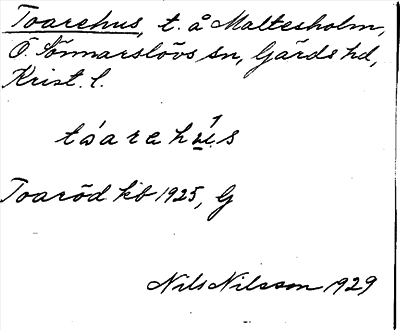 Toarehus, t. å Maltesholm,
Ö. Sönnarslövs sn, Gärds hd,
Krist. l.
tòarehu̲s
Toaröd kb 1925, G
Nils Nilsson 1929